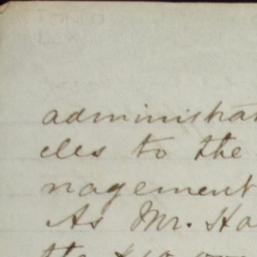 administrat
cles to the
nagement
As Mr. Ha
the